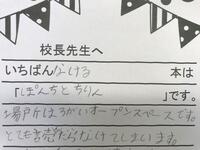 校長先生へ
いちばんなける 本は
「ぽんちとちりん 」です。
場戸斤はろがいオープンスペースです。
とても言売だらなけてしまいます。